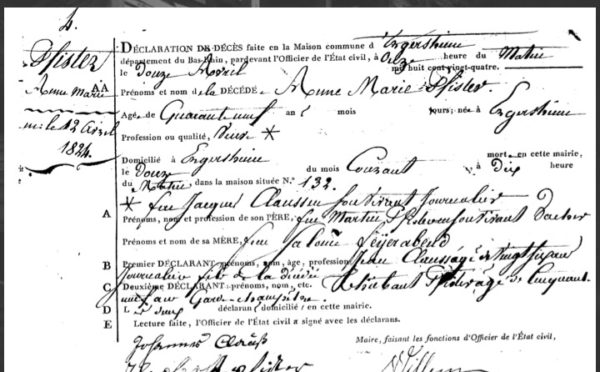 4.
Pfister
Anne Marie
12 avril
1824.
DÉCLARATION DE DÉCÈS faite en la Maison commune d'Ergersheim
département du Bas-Rhin, pardevant l'Officier de l'État civil, à Onze heure du Matin
le Douze Avril mil huit cent vingt-quatre.
AA Prénoms et nom de la DÉCÉDÉE Anne Marie Pfister.
Age de Quarante neuf ans mois jours; née à Ergersheim
Profession ou qualité, *
Domicilié à Ergersheim mort en cette mairie,
le Douze du mois Courant à Dix heure
du Matin dans la maison située N.° 132.
* feu Jacques Clauss en son vivant Journalier
A Prénoms, nom et profession de son PÈRE, feu Martin Pfister en son vivant
Prénoms et nom de sa MÈRE, feue Salomé Feÿerabend
B Premier DÉCLARANT: prénoms, nom, âge, profession Jean Clauss agé de
Journalier fils de la
C Deuxième DÉCLARANT: prénoms, nom, etc. Thiebaut agé de Cinquante
neuf ans Garde-champêtre
D L deux déclarans domicilié en cette mairie.
E Lecture faite, l'Officier de l'État civil a signé avec les déclarans.
Maire, faisant les fonctions d'Officier de l'État civil,
Johannes Clauß